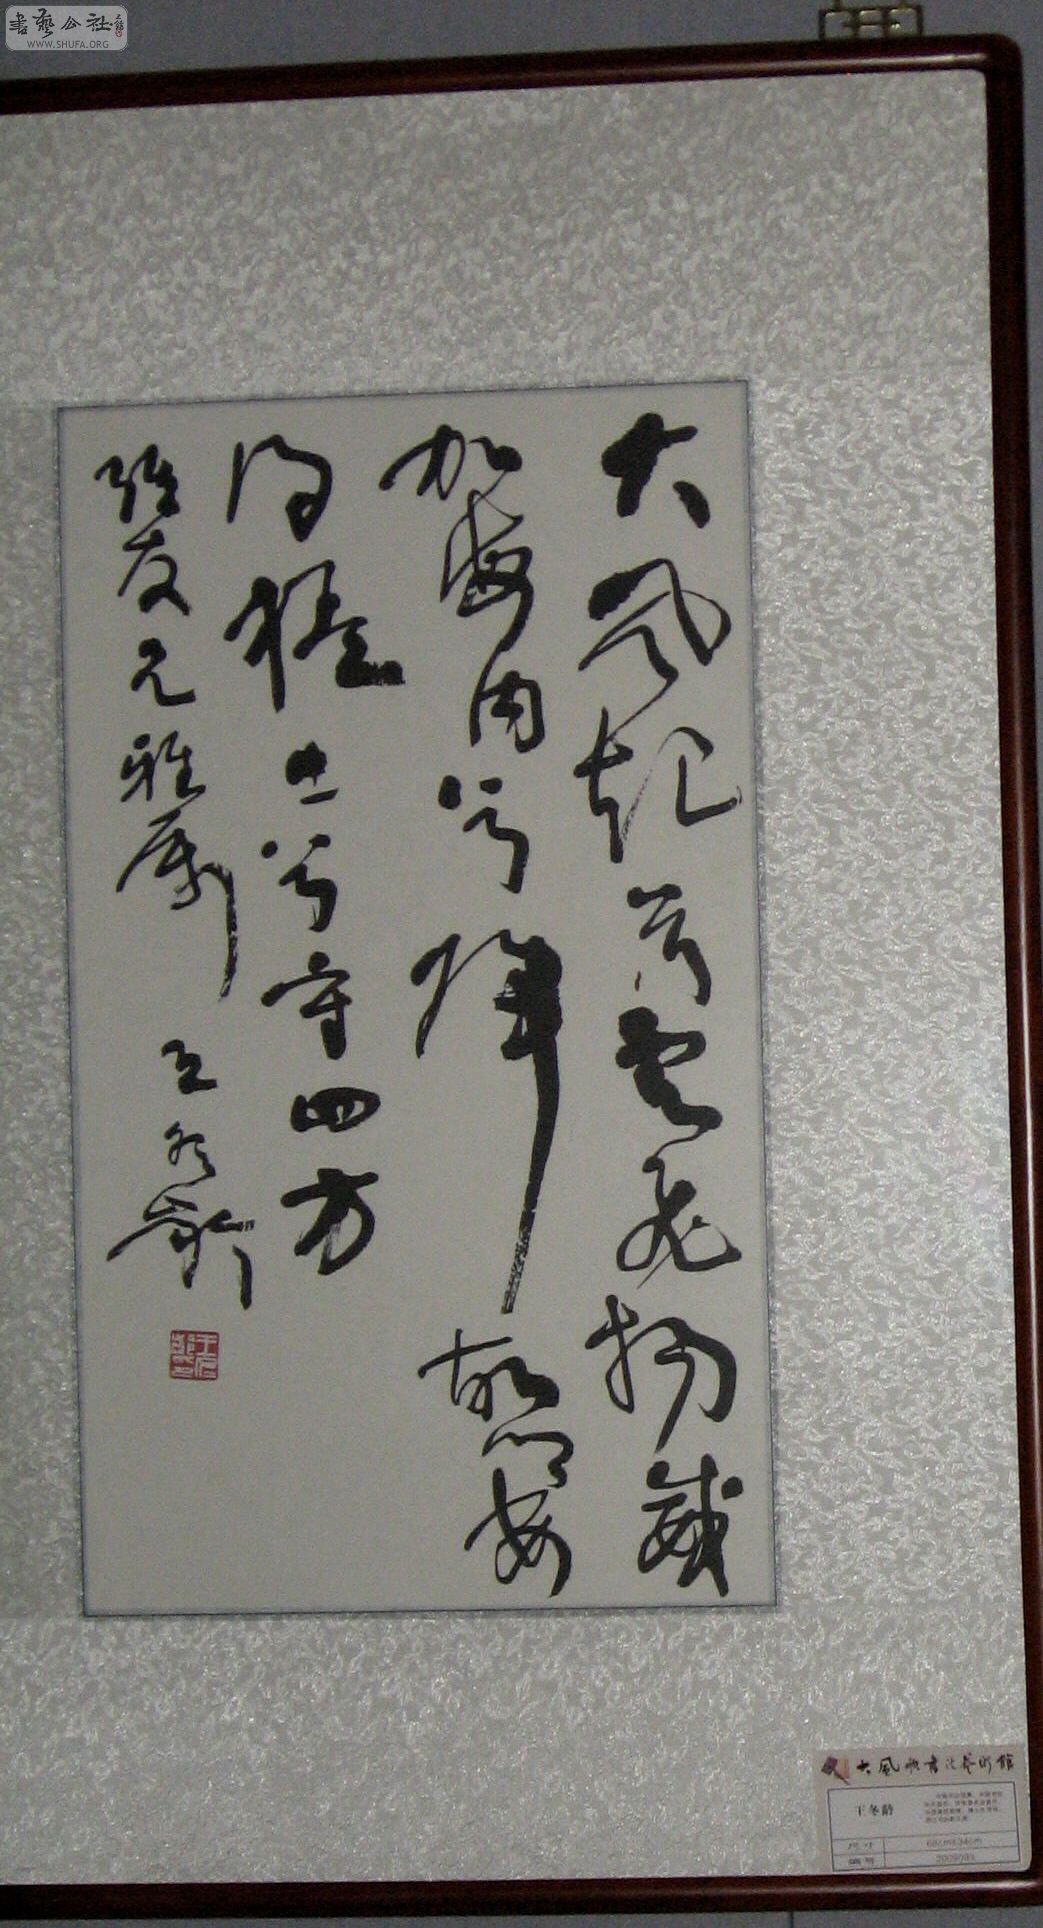 書藝公社
WWW.SHUFA.ORG
大風起兮雲飛揚威
加海内兮歸故鄉安
得猛士兮守四方
友兄雅屬 王冬齡
大風歌書法藝術館
王冬龄
尺寸 68cm×34cm
编号